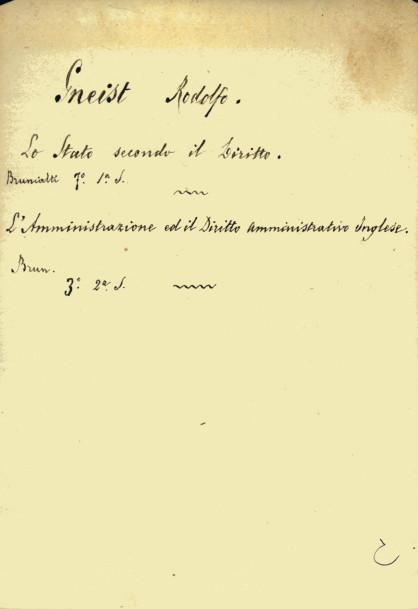 Gneist Rodolfo.
Lo Stato secondo il Diritto.
Brunialti 7° 1ª S.
L'Amministrazione ed il Diritto amministrativo Inglese.
Brun.
3° 2ª S.